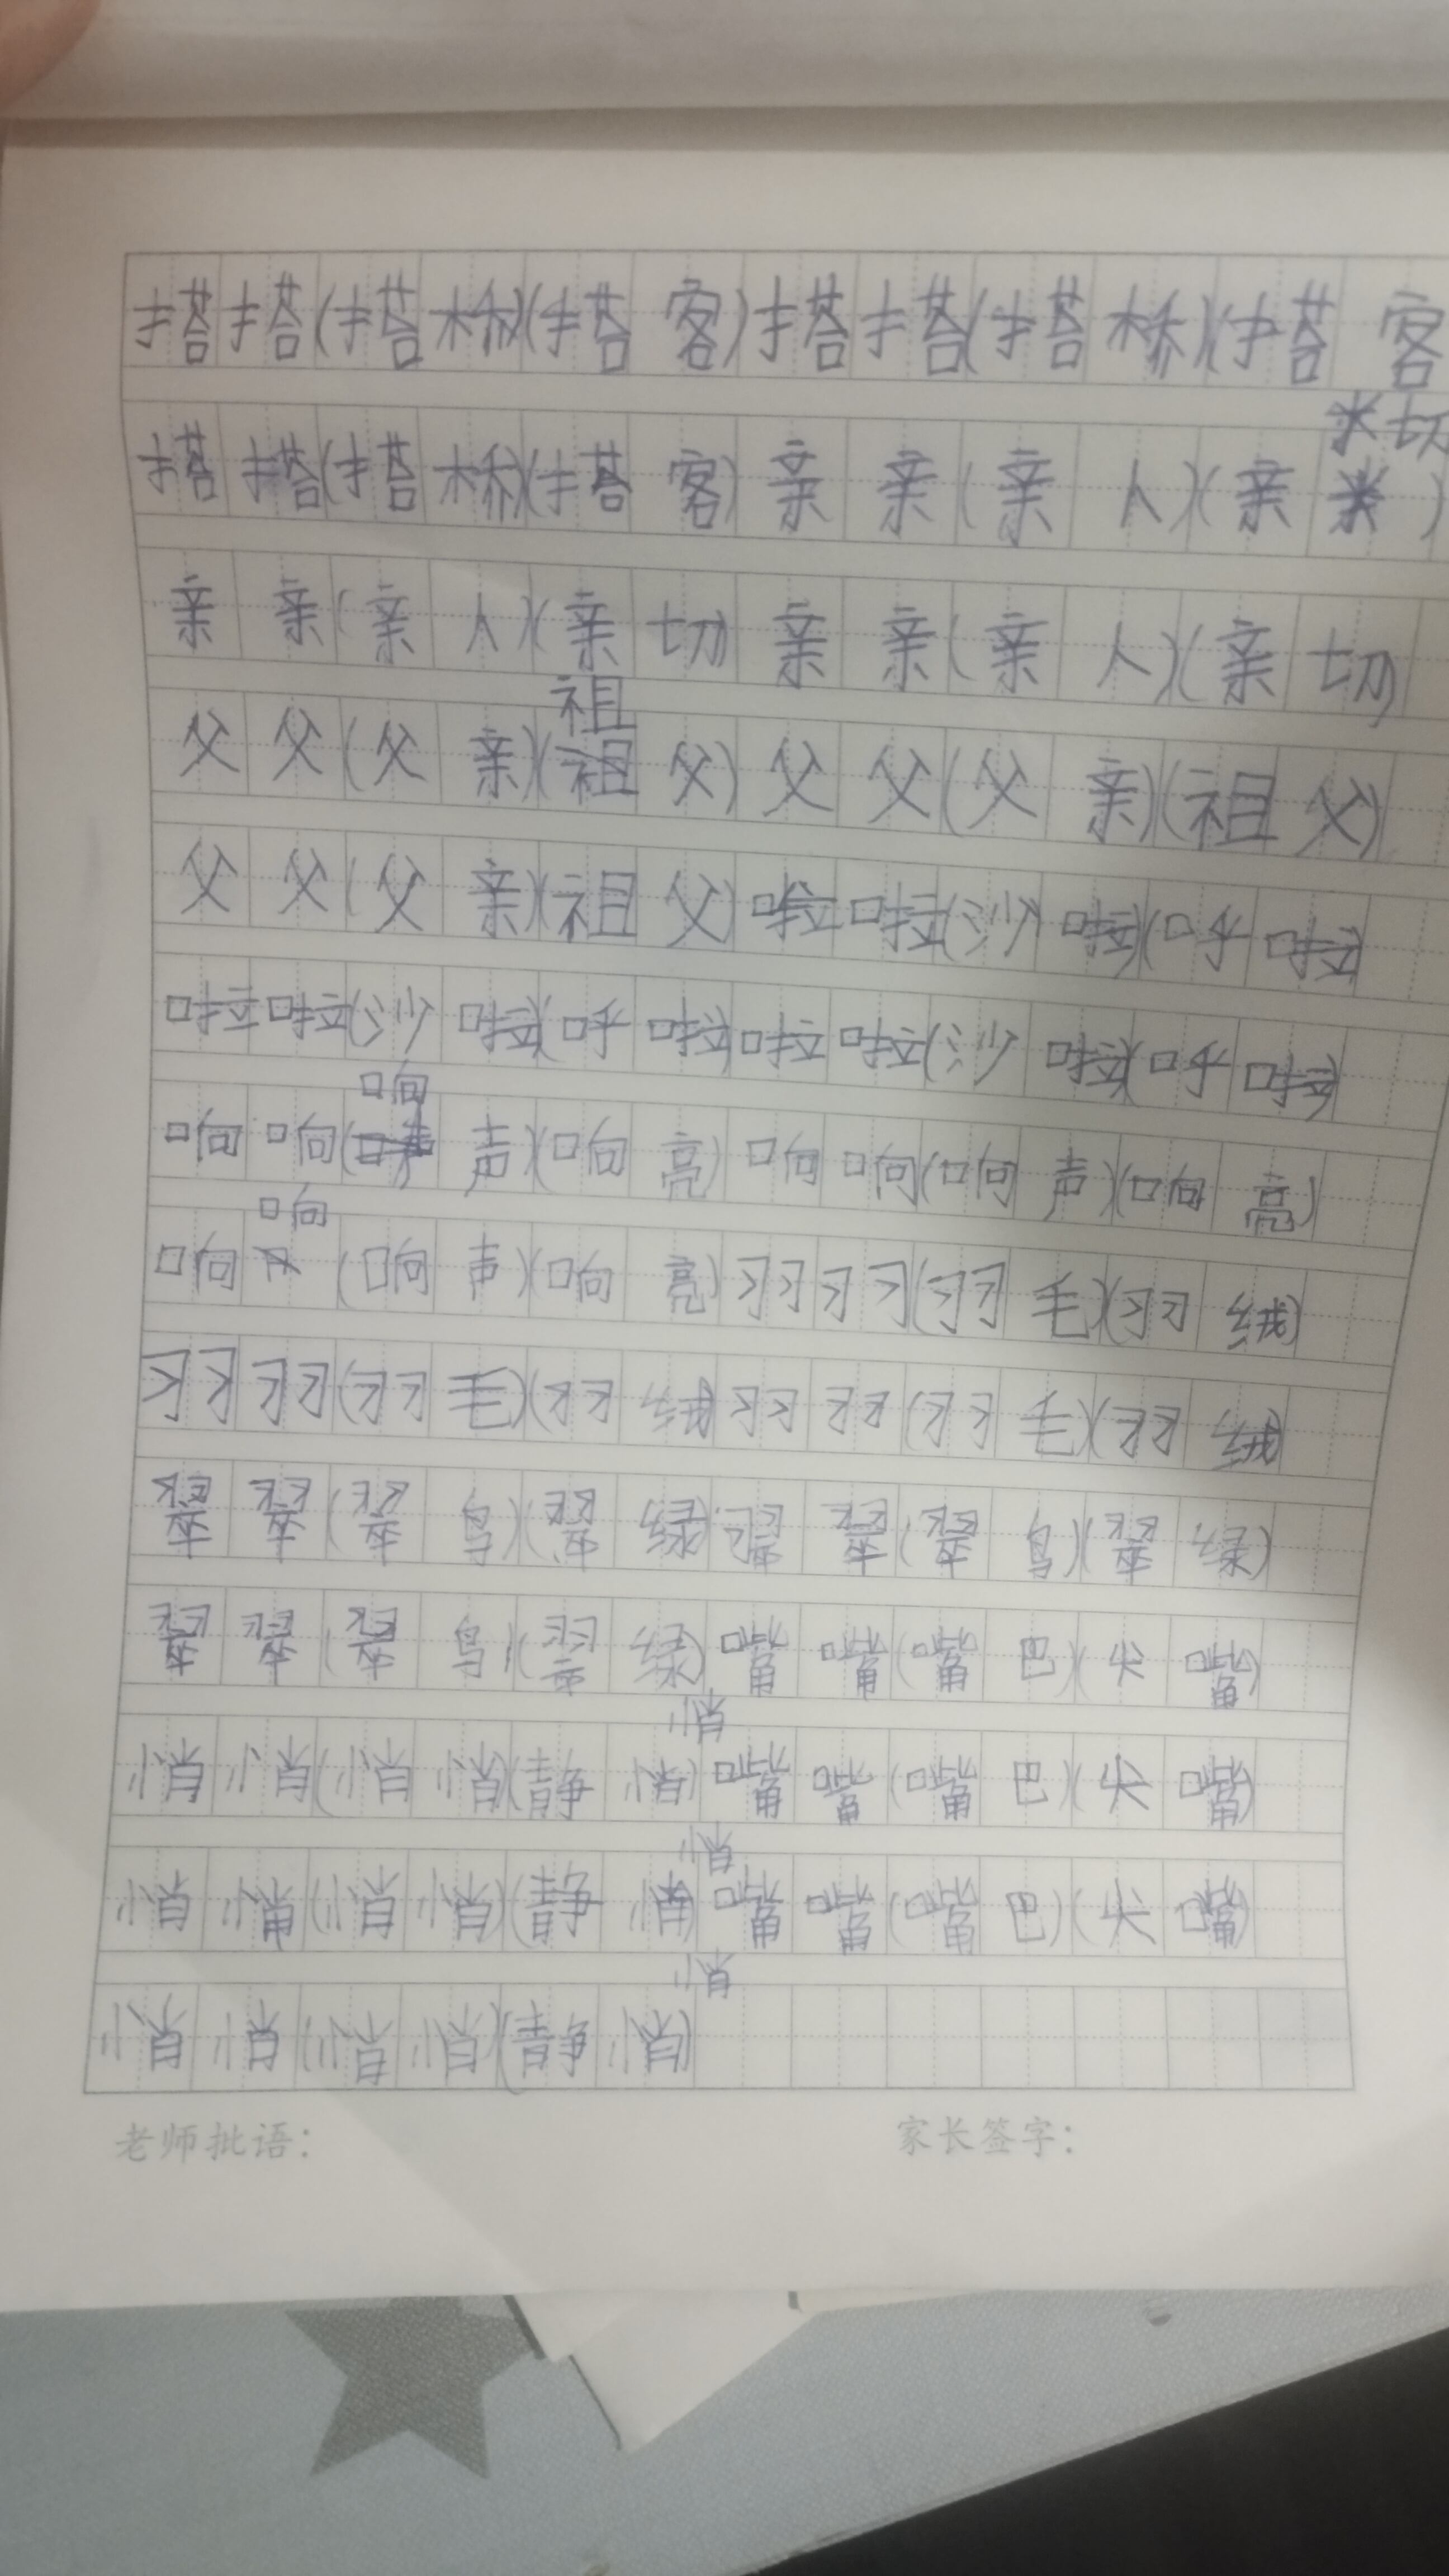 搭搭(搭桥)(搭客)搭搭(搭桥)(搭客
搭搭(搭桥)(搭客)亲亲(亲人)(亲切)
亲亲(亲人)(亲切)亲亲(亲人)(亲切)
父父(父亲)(祖父)父父(父亲)(祖父)
父父(父亲)(祖父)啦啦(沙啦)(呼啦)
啦啦(沙啦)(呼啦)啦啦(沙啦)(呼啦)
响响(响声)(响亮)响响(响声)(响亮)
响响(响声)(响亮)羽羽(羽毛)(羽绒)
羽羽(羽毛)(羽绒)羽羽(羽毛)(羽绒)
翠翠(翠鸟)(翠绿)翠翠(翠鸟)(翠绿)
翠翠(翠鸟)(翠绿)嘴嘴(嘴巴)(尖嘴)
悄悄(悄悄)(静悄)嘴嘴(嘴巴)(尖嘴)
悄悄(悄悄)(静悄)嘴嘴(嘴巴)(尖嘴)
悄悄(悄悄)(静悄)
老师批语: 家长签字: